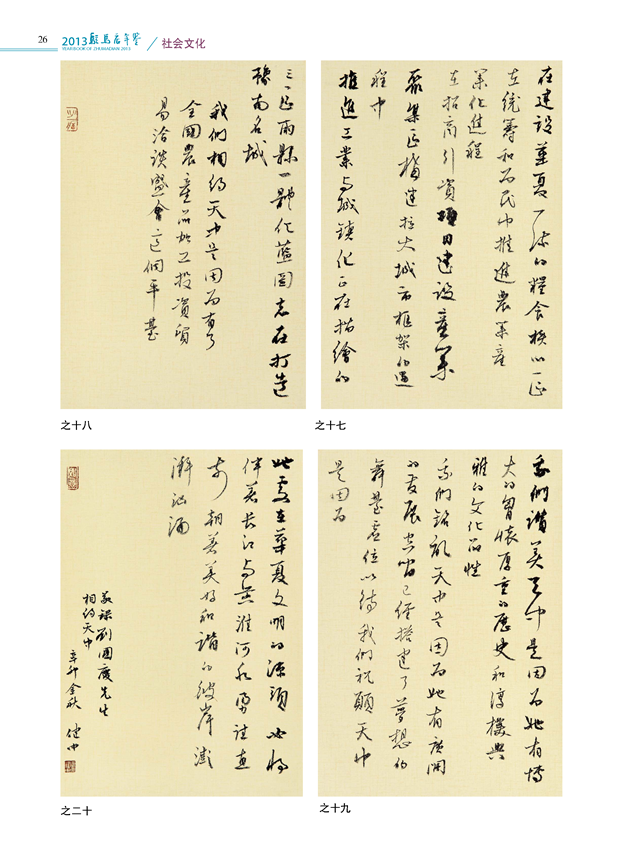 26
2013驻马店年鉴
YEARBOOK OF ZHUMADIAN 2013
社会文化
在建设华夏一流的粮食核心区
在统筹和为民中推进农业产
业化进程
在招商引资项目建设产业
聚集区搭建拉大城市框架的过
程中
推进工业与城镇化正在描绘的
之十七
三区两县一体化蓝图志在打造
豫南名城
我们相约天中是因为有了
全国农产品加工投资贸
易洽谈盛会这个平台
之十八
我们赞美天中是因为她有博
大的胸怀厚重的历史和淳朴典
雅的文化品性
我们铭记天中是因为她有广阔
的发展空间已经搭建了梦想的
舞台虚位以待我们祝愿天中
是因为
之十九
此处在华夏文明的源头必将
伴着长江与黄淮河水勇往直
前朝着美好和谐的彼岸澎
湃汹涌
敬录刘国庆先生
相约天中
辛卯金秋
之二十